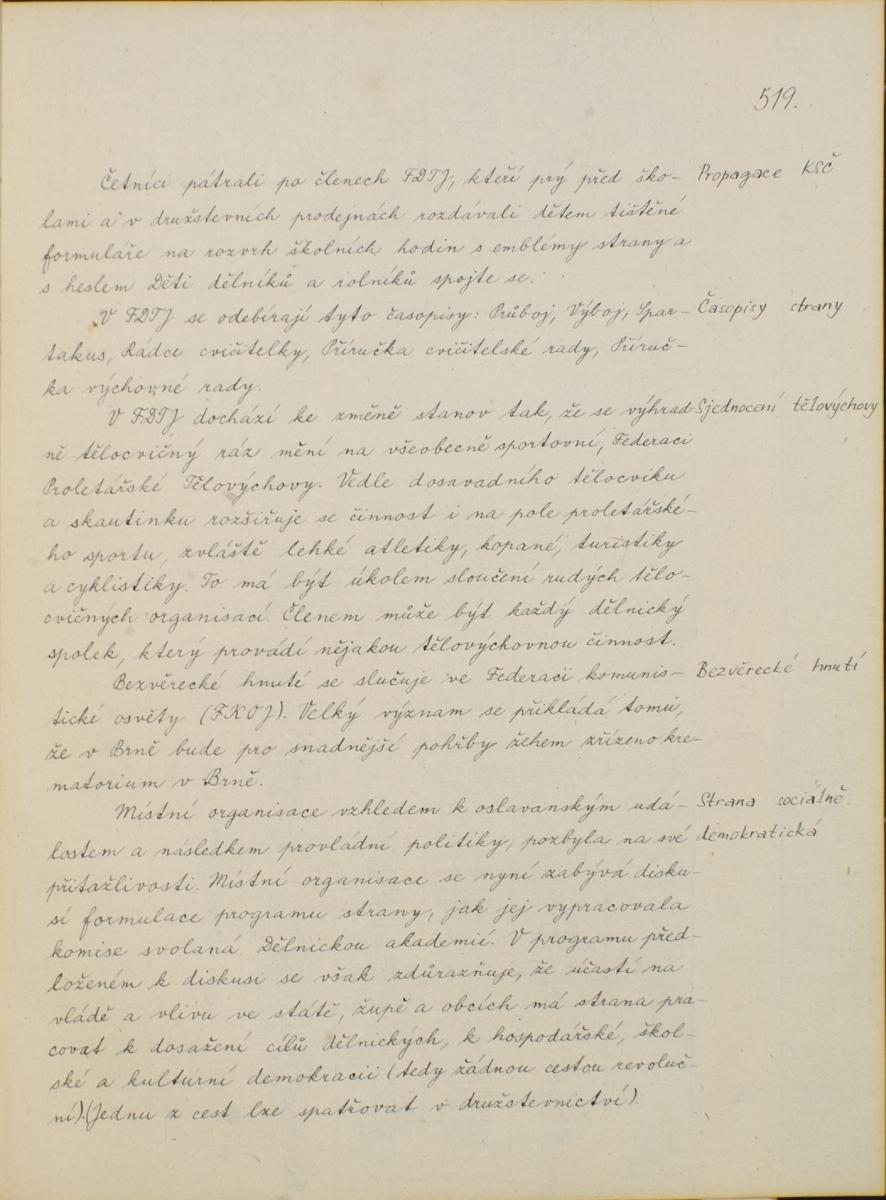 519.
Četníci pátrali po členech FDTJ, kteří prý před ško- Propagace KSČ
lami a v družstevních prodejnách rozdávali dětem tištěné
formuláře na rozvrh školních hodin s emblémy strany a
s heslem Děti dělníků a rolníků spojte se.
V FDTJ se odebírají tyto časopisy: Průboj, Výboj, Spar- Časopisy strany
takus, Rádce cvičitelky, Příručka cvičitelské rady, Příruč-
ka výchovné rady.
V FDTJ dochází ke změně stanov tak, že se výhrad- Sjednocení tělovýchovy
ně tělocvičný ráz mění na všeobecně sportovní, Federaci
Proletářské Tělovýchovy. Vedle dosavadního tělocviku
a skautinku rozšiřuje se činnost i na pole proletářské-
ho sportu, zvláště lehké atletiky, kopané, turistiky
a cyklistiky. To má být úkolem sloučení rudých tělo-
cvičných organisací. Členem může být každý dělnický
spolek, který provádí nějakou tělovýchovnou činnost.
Bezvěrecké hnutí se slučuje ve Federaci komunis- Bezvěrecké hnutí
tické osvěty (FKOJ). Velký význam se přikládá tomu,
že v Brně bude pro snadnější pohřby žehem zřízeno kre-
matorium v Brně.
Místní organisace vzhledem k oslavanským udá- Strana sociálně
lostem a následkem provládní politiky, pozbyla na své demokratická
přitažlivosti. Místní organisace se nyní zabývá disku-
sí formulace programu strany, jak jej vypracovala
komise svolaná Dělnickou akademií. V programu před-
loženém k diskusi se však zdůrazňuje, že účastí na
vládě a vlivu ve státě, župě a obcích má strana pra-
covat k dosažení cílů dělnických, k hospodářské, škol-
ské a kulturní demokracii (tedy žádnou cestou revoluč-
ní). (Jednu z cest lze spatřovat v družstevnictví).